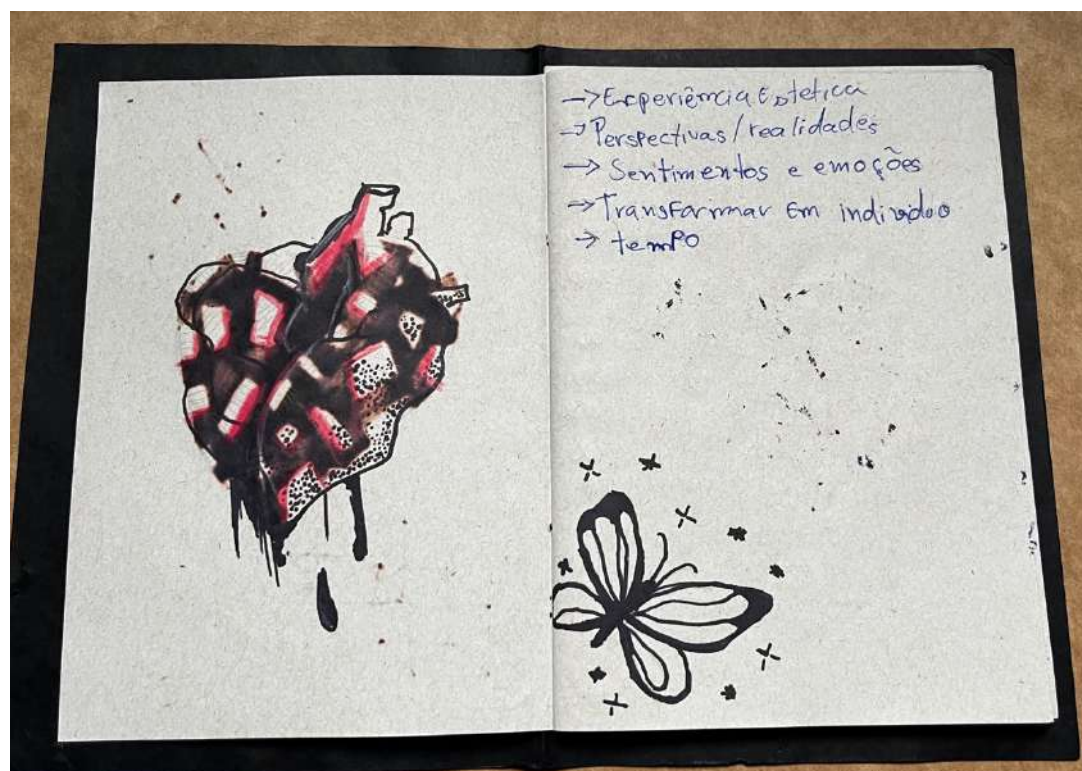 → Experiência Estetica
→ Perspectivas/realidades
→ Sentimentos e emoções
→ Transformar em individoo
→ tempo